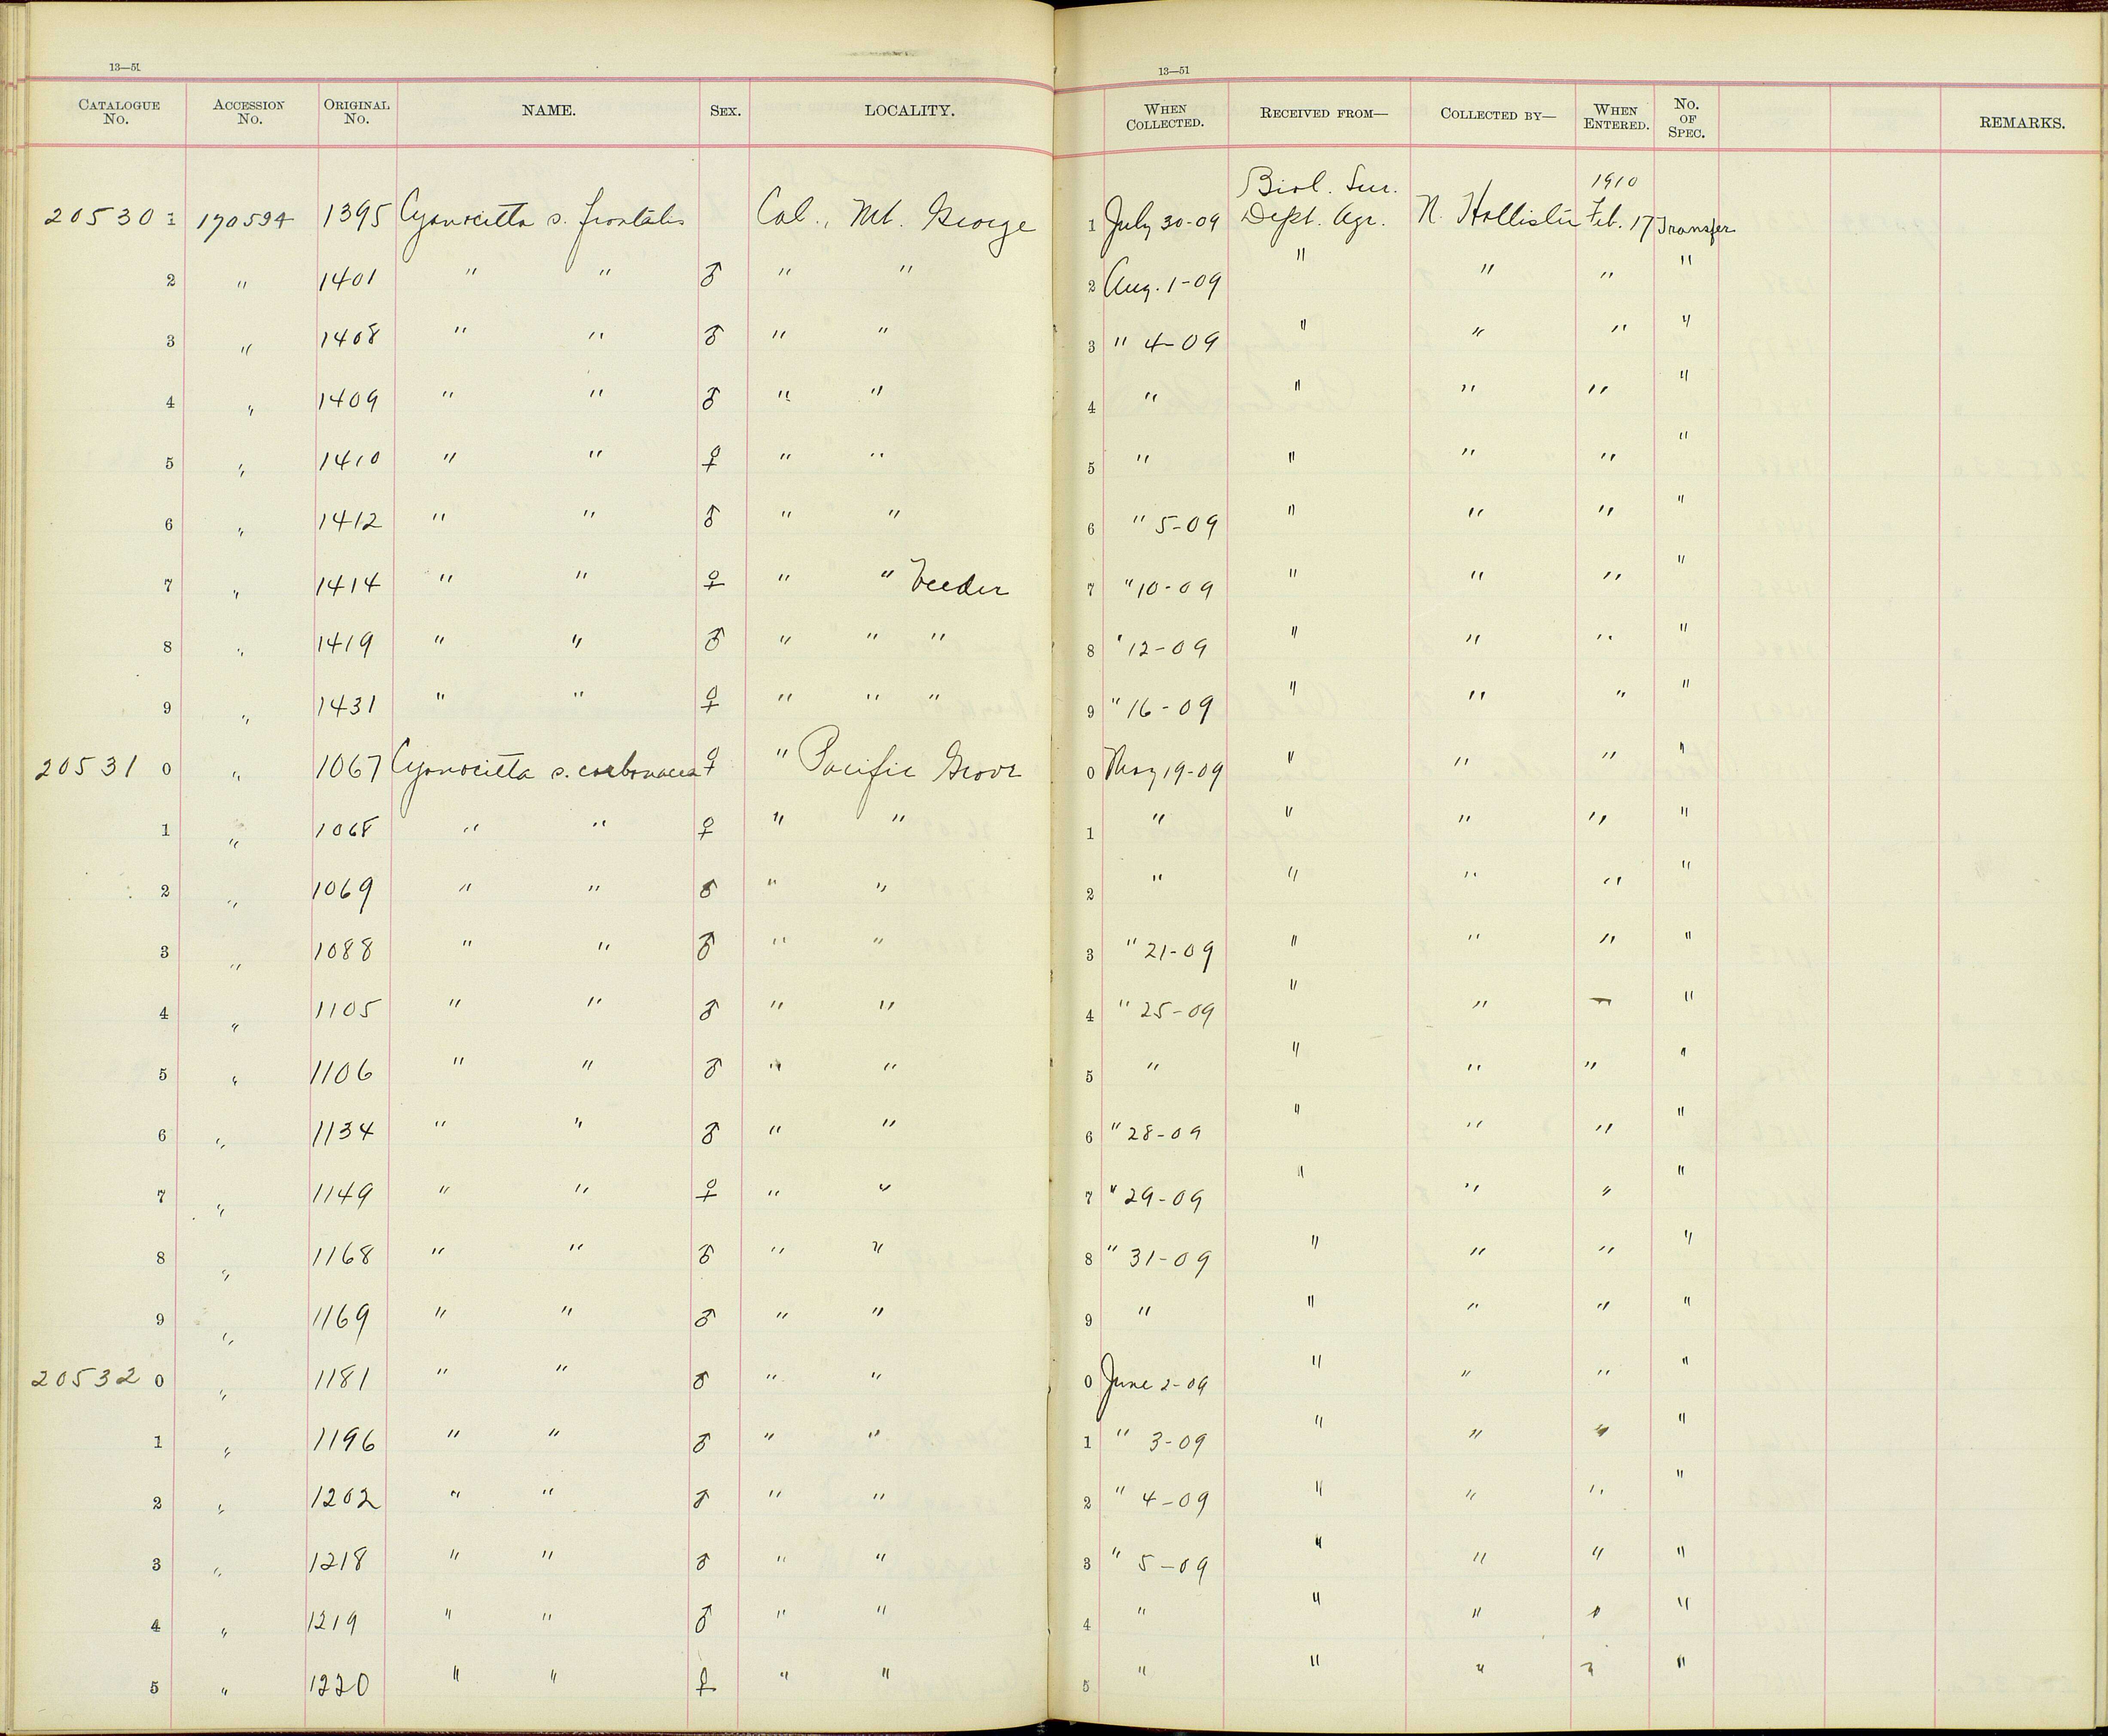 13—51
CATALOGUE No. ACCESSION No. ORIGINAL No. NAME. SEX. LOCALITY.
20530 1 170594 1395 Cyanocitta s. frontalis Cal., Mt. George
2 " 1401 " " ♂ " "
3 " 1408 " " ♂ " "
4 " 1409 " " ♂ " "
5 " 1410 " " ♀ " "
6 " 1412 " " ♂ " "
7 " 1414 " " ♀ " " Veeder
8 " 1419 " " ♂ " " "
9 " 1431 " " ♀ " " "
20531 0 " 1067 Cyanocitta s. carbonacea ♀ " Pacific Grove
1 " 1068 " " ♀ " "
2 " 1069 " " ♂ " "
3 " 1088 " " ♂ " "
4 " 1105 " " ♂ " "
5 " 1106 " " ♂ " "
6 " 1134 " " ♂ " "
7 " 1149 " " ♀ " "
8 " 1168 " " ♂ " "
9 " 1169 " " ♂ " "
20532 0 " 1181 " " ♂ " "
1 " 1196 " " ♂ " "
2 " 1202 " " ♂ " "
3 " 1218 " " ♂ " "
4 " 1219 " " ♂ " "
5 " 1220 " " ♀ " "
13—51
WHEN COLLECTED. RECEIVED FROM— COLLECTED BY— WHEN ENTERED. No. OF SPEC. REMARKS.
Biol. Sur. 1910
1 July 30-09 Dept. Agr. N. Hollister Feb. 17 Transfer
2 Aug. 1-09 " " " "
3 " 4-09 " " " "
4 " " " " "
5 " " " " "
6 " 5-09 " " " "
7 " 10-09 " " " "
8 " 12-09 " " " "
9 " 16-09 " " " "
0 May 19-09 " " " "
1 " " " " "
2 " " " " "
3 " 21-09 " " " "
4 " 25-09 " " " "
5 " " " " "
6 " 28-09 " " " "
7 " 29-09 " " " "
8 " 31-09 " " " "
9 " " " " "
0 June 2-09 " " " "
1 " 3-09 " " " "
2 " 4-09 " " " "
3 " 5-09 " " " "
4 " " " " "
5 " " " " "